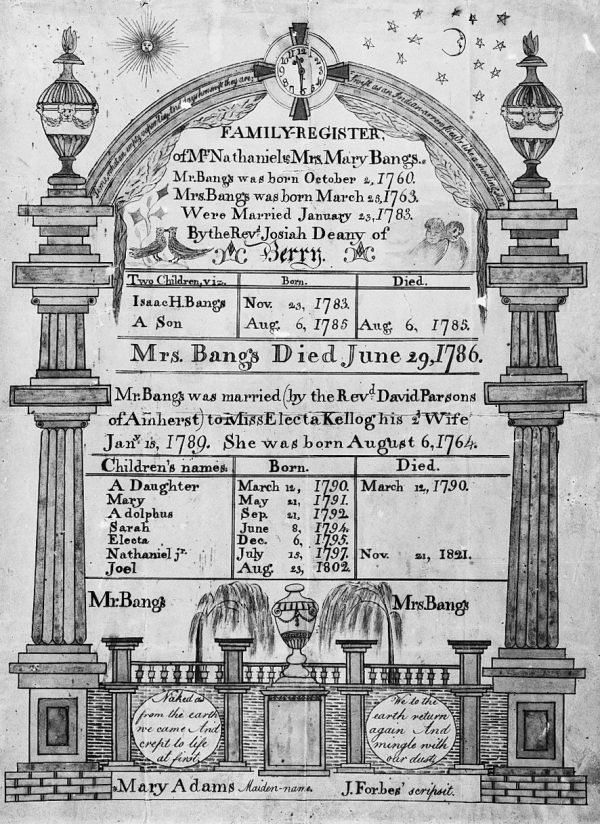 Time what an empty vapour tis, And days how swift they are;
Swift as an Indian arrow flies, Or like a shooting star.
FAMILY-REGISTER,
of Mr. Nathaniel & Mrs. Mary Bangs.
Mr. Bangs was born October 2, 1760.
Mrs. Bangs was born March 28, 1763.
Were Married January 23, 1783.
By the Revd. Josiah Deany of
Berry.
Two Children, viz. Born. Died.
Isaac H. Bangs Nov. 23, 1783.
A Son Aug. 6, 1785 Aug. 6, 1785.
Mrs. Bangs Died June 29, 1786.
Mr. Bangs was married (by the Revd. David Parsons
of Amherst) to Miss Electa Kellog his 2d Wife
Jany. 18, 1789. She was born August 6, 1764.
Children's names. Born. Died.
A Daughter March 12, 1790. March 12, 1790.
Mary May 21, 1791.
Adolphus Sep. 21, 1792.
Sarah June 8, 1794.
Electa Dec. 6, 1795.
Nathaniel jr. July 15, 1797. Nov. 21, 1821.
Joel Aug. 23, 1802.
Mr. Bangs
Mrs. Bangs
Naked as
from the earth
we came And
crept to life
at first,
We to the
earth return
again And
mingle with
our dust.
Mary Adams Maiden-name. J. Forbes' scripsit.